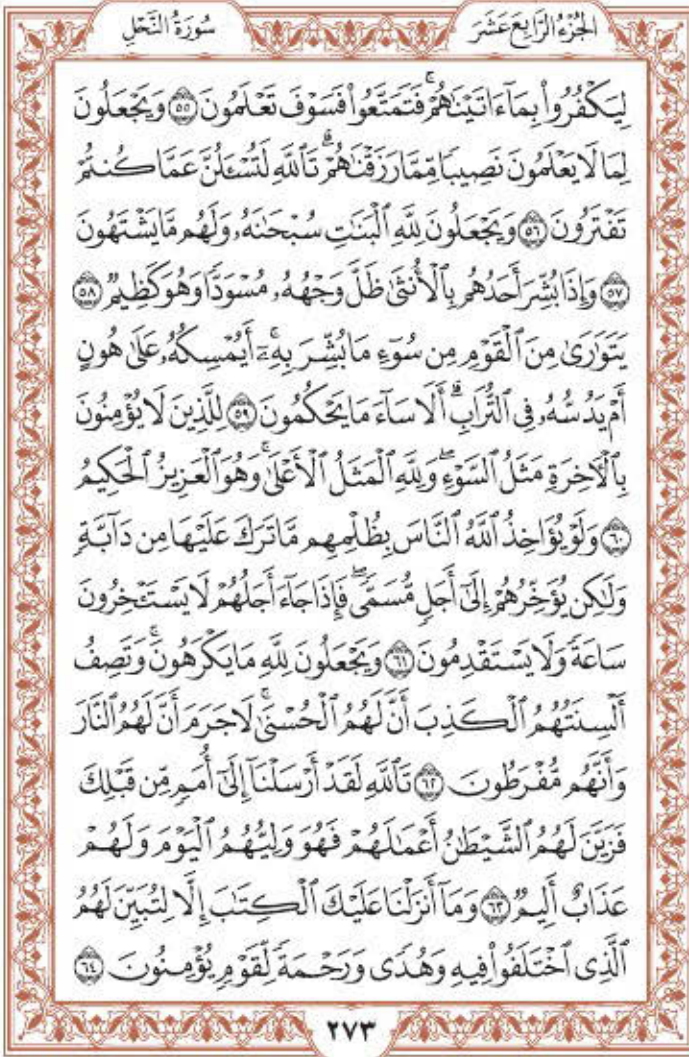 الجُزْءُ الرَّابِعَ عَشَرَ
سُورَةُ النَّحْلِ
لِيَكْفُرُوا۟ بِمَآ ءَاتَيْنَٰهُمْ ۚ فَتَمَتَّعُوا۟ فَسَوْفَ تَعْلَمُونَ ٥٥ وَيَجْعَلُونَ
لِمَا لَا يَعْلَمُونَ نَصِيبًا مِّمَّا رَزَقْنَٰهُمْ ۗ تَٱللَّهِ لَتُسْـَٔلُنَّ عَمَّا كُنتُمْ
تَفْتَرُونَ ٥٦ وَيَجْعَلُونَ لِلَّهِ ٱلْبَنَٰتِ سُبْحَٰنَهُۥ وَلَهُم مَّا يَشْتَهُونَ
٥٧ وَإِذَا بُشِّرَ أَحَدُهُم بِٱلْأُنثَىٰ ظَلَّ وَجْهُهُۥ مُسْوَدًّا وَهُوَ كَظِيمٌ ٥٨
يَتَوَٰرَىٰ مِنَ ٱلْقَوْمِ مِن سُوٓءِ مَا بُشِّرَ بِهِۦٓ ۚ أَيُمْسِكُهُۥ عَلَىٰ هُونٍ
أَمْ يَدُسُّهُۥ فِى ٱلتُّرَابِ ۗ أَلَا سَآءَ مَا يَحْكُمُونَ ٥٩ لِلَّذِينَ لَا يُؤْمِنُونَ
بِٱلْءَاخِرَةِ مَثَلُ ٱلسَّوْءِ ۖ وَلِلَّهِ ٱلْمَثَلُ ٱلْأَعْلَىٰ ۚ وَهُوَ ٱلْعَزِيزُ ٱلْحَكِيمُ
٦٠ وَلَوْ يُؤَاخِذُ ٱللَّهُ ٱلنَّاسَ بِظُلْمِهِم مَّا تَرَكَ عَلَيْهَا مِن دَآبَّةٍ
وَلَٰكِن يُؤَخِّرُهُمْ إِلَىٰٓ أَجَلٍ مُّسَمًّى ۖ فَإِذَا جَآءَ أَجَلُهُمْ لَا يَسْتَـْٔخِرُونَ
سَاعَةً وَلَا يَسْتَقْدِمُونَ ٦١ وَيَجْعَلُونَ لِلَّهِ مَا يَكْرَهُونَ ۚ وَتَصِفُ
أَلْسِنَتُهُمُ ٱلْكَذِبَ أَنَّ لَهُمُ ٱلْحُسْنَىٰ ۚ لَا جَرَمَ أَنَّ لَهُمُ ٱلنَّارَ
وَأَنَّهُم مُّفْرَطُونَ ٦٢ تَٱللَّهِ لَقَدْ أَرْسَلْنَآ إِلَىٰٓ أُمَمٍ مِّن قَبْلِكَ
فَزَيَّنَ لَهُمُ ٱلشَّيْطَٰنُ أَعْمَٰلَهُمْ فَهُوَ وَلِيُّهُمُ ٱلْيَوْمَ وَلَهُمْ
عَذَابٌ أَلِيمٌ ٦٣ وَمَآ أَنزَلْنَا عَلَيْكَ ٱلْكِتَٰبَ إِلَّا لِتُبَيِّنَ لَهُمُ
ٱلَّذِى ٱخْتَلَفُوا۟ فِيهِ وَهُدًى وَرَحْمَةً لِّقَوْمٍ يُؤْمِنُونَ ٦٤
٢٧٣